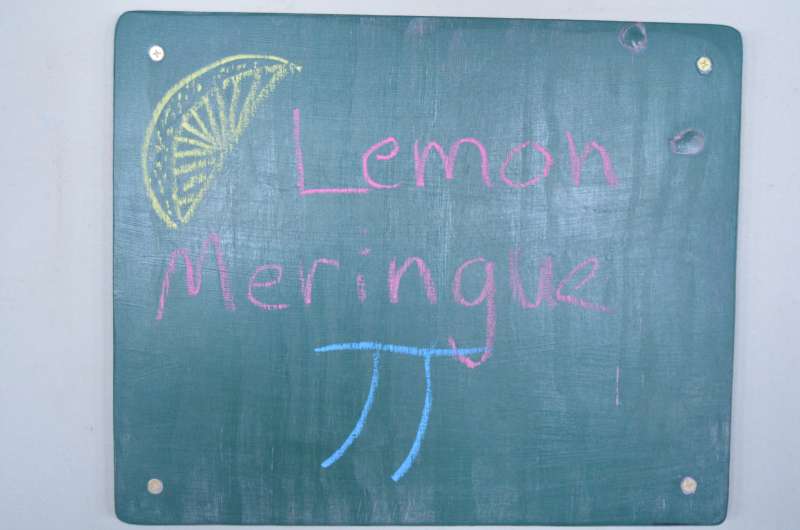 Lemon
Meringue
π